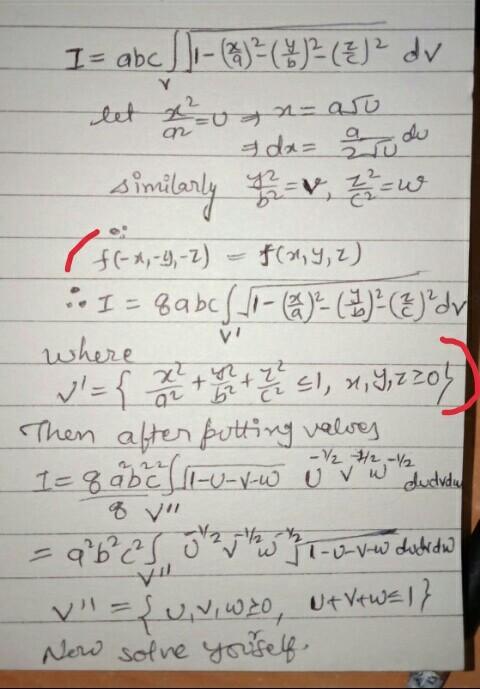 I = abc ∫∫ √1-(x/a)²-(y/b)²-(z/c)² dv
V
let x²/a² = U ⇒ x = a√U
⇒ dx = a/2√U du
similarly y²/b² = V, z²/c² = w
∵
f(-x,-y,-z) = f(x,y,z)
∴ I = 8abc ∫ √1-(x/a)²-(y/b)²-(z/c)² dv
V'
where
V' = { x²/a² + y²/b² + z²/c² ≤ 1, x,y,z ≥ 0 }
Then after putting values
I = 8a²b²c²/8 ∫ √1-U-V-W U^-1/2 V^-1/2 W^-1/2 dudvdw
V''
= a²b²c² ∫ U^-1/2 V^-1/2 W^-1/2 √1-U-V-W dudvdw
V''
V'' = { U,V,W ≥ 0, U+V+W ≤ 1 }
Now solve yourself.